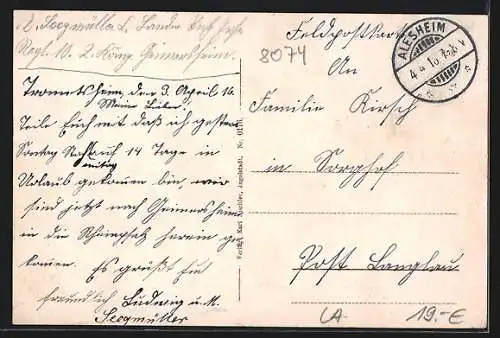 L. Seegmüller L. Landw. Inf.
Regt. N. 2. Komp. Germersheim.
Feldpostkarte
8074
ALESHEIM
4 4 16 V
An
Trommetsheim, den 3. April 16.
Meine Lieben!
Familie Kirsch
Teile Euch mit daß ich gestern
Sontag auf 14 Tage in
mittag
in Sorghof
Urlaub gekommen bin, wir
sind jetzt nach Germersheim
in die Rheinpfalz herein ge
kommen. Es grüßt Euch
Post Langlau
freundlich Ludwig u. M.
Seegmüller
Verlag Karl Ingolstadt. Nr.
LA
19.-E